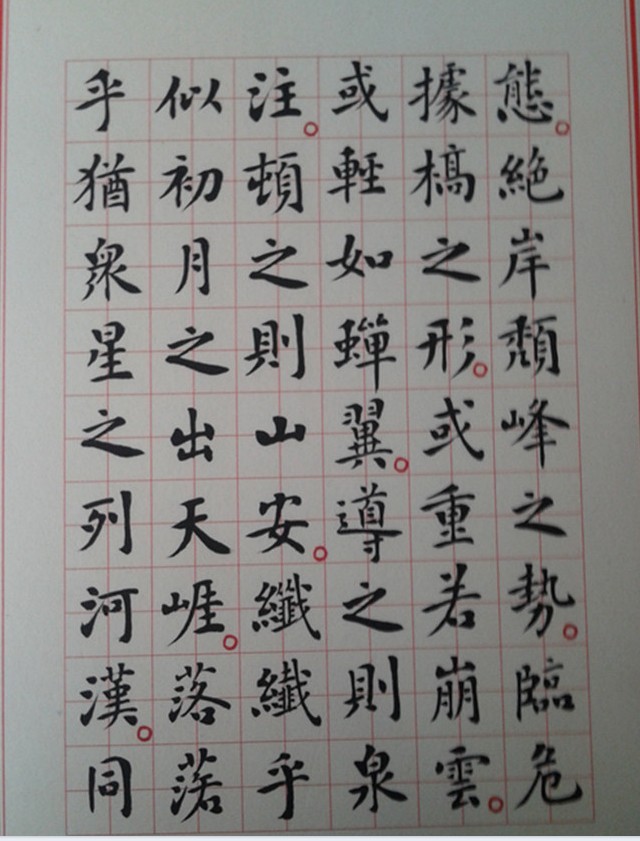 態。絶岸頽峰之勢。臨危
據槁之形。或重若崩雲。
或輕如蟬翼。導之則泉
注。頓之則山安。纖纖乎
似初月之出天崕。落落
乎猶衆星之列河漢。同